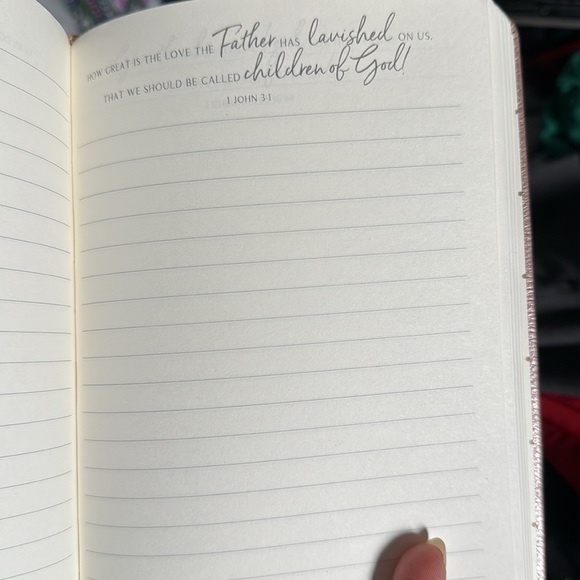 HOW GREAT IS THE LOVE THE Father HAS lavished ON US,
THAT WE SHOULD BE CALLED children of God!
1 JOHN 3:1